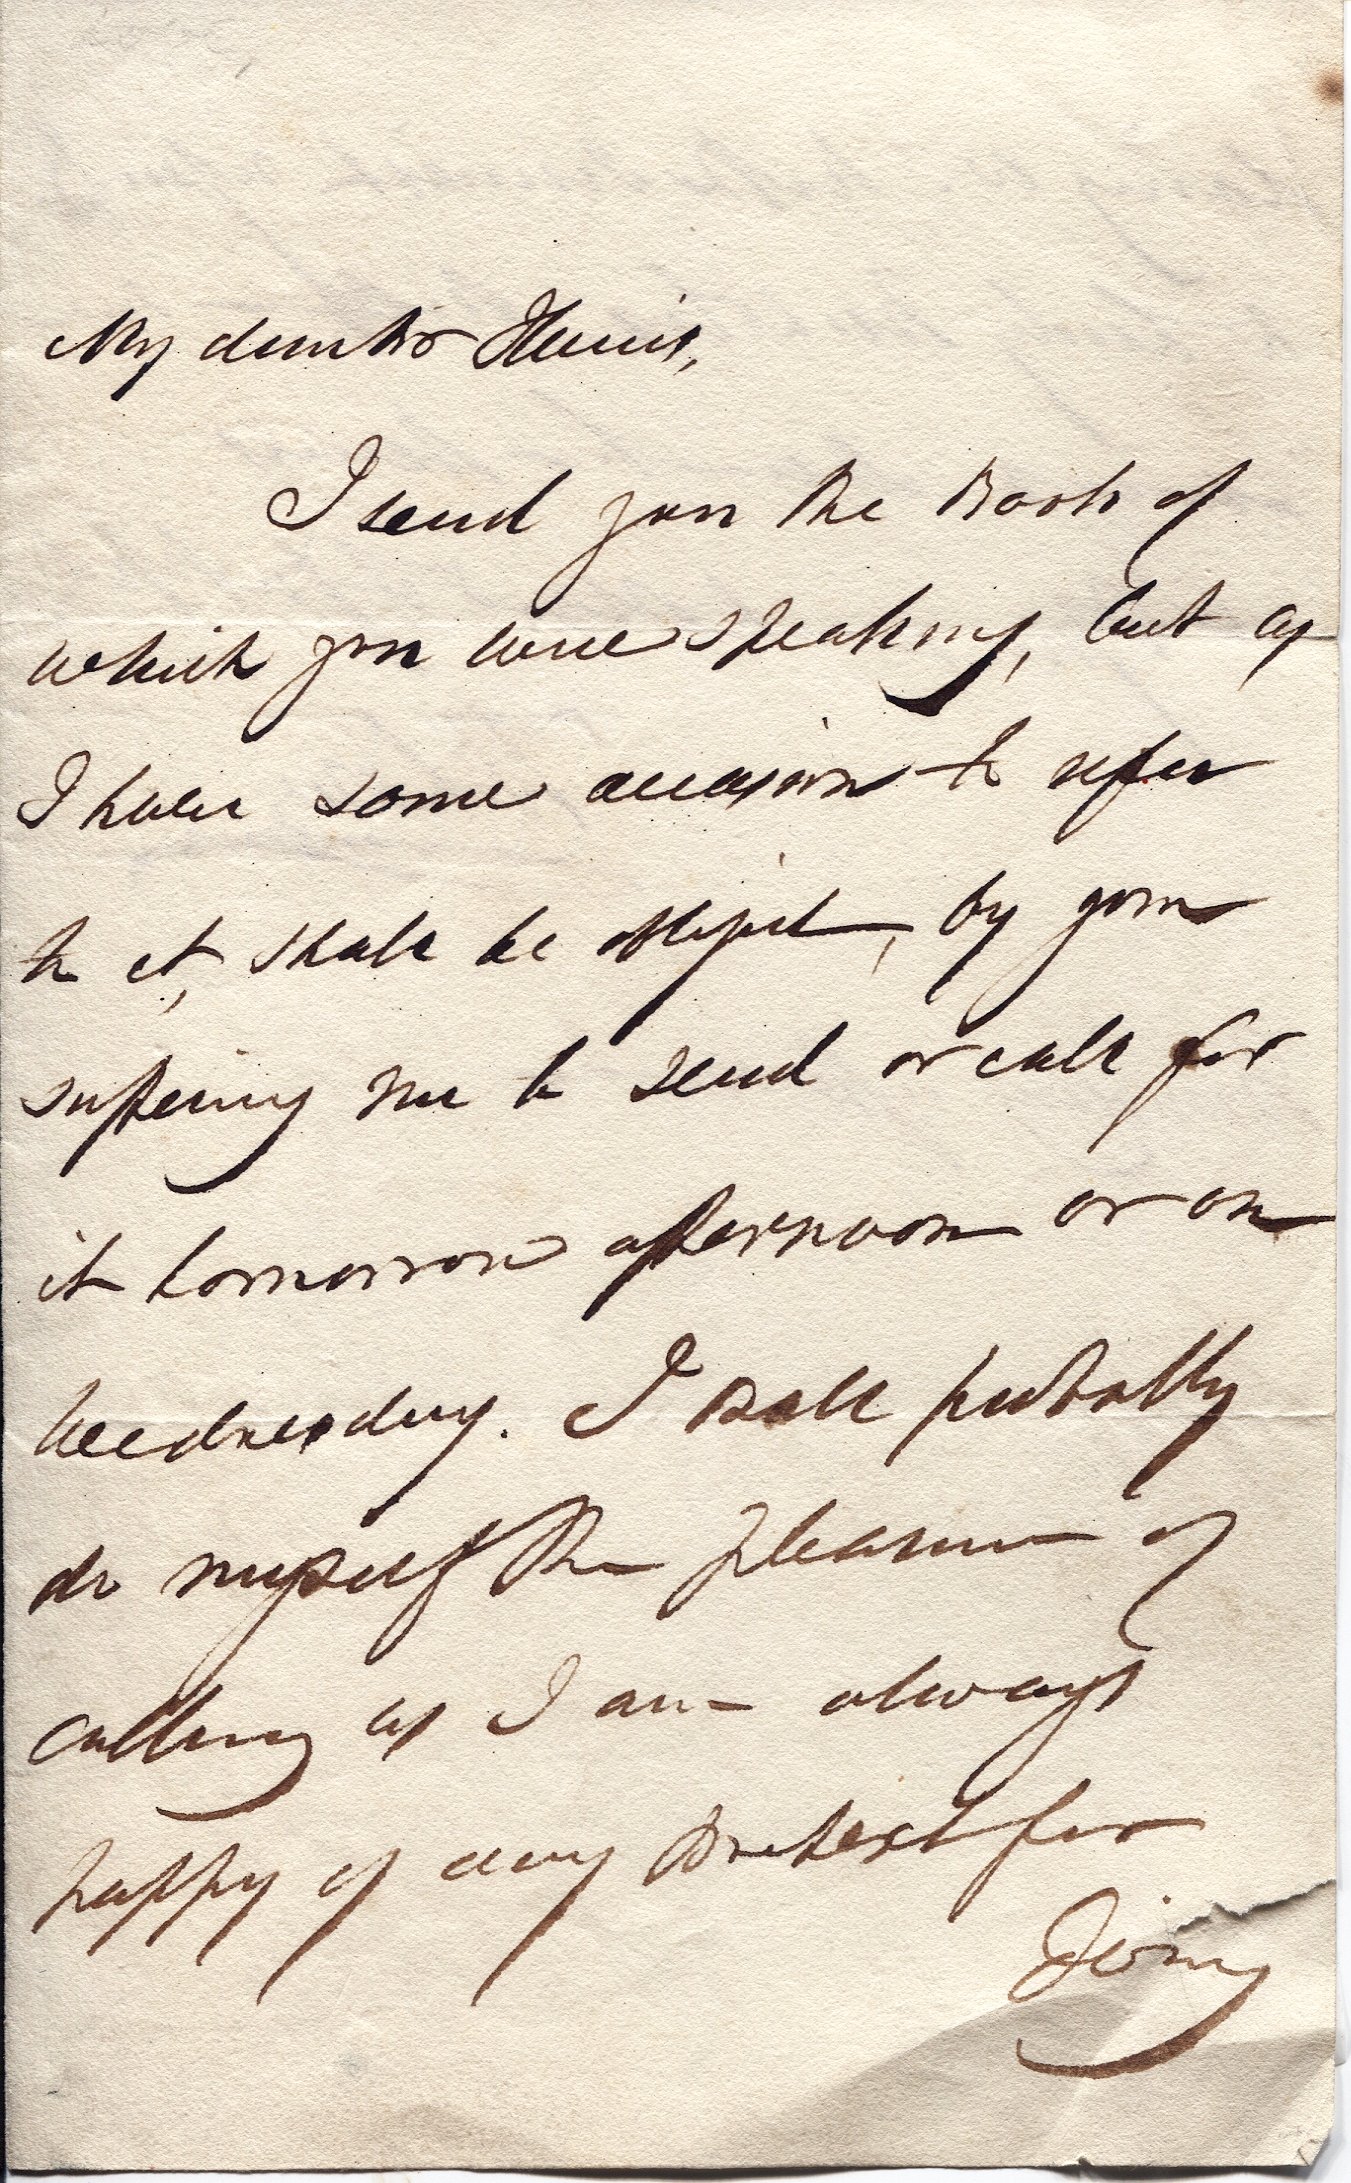 My dear
I send you the Book of
which you were speaking, but as
I have some occasion to refer
to it, shall be obliged, by your
suffering me to send or call for
it tomorrow afternoon or on
Wednesday. I shall probably
do myself the pleasure of
calling as I am always
happy of any Pretext for
doing